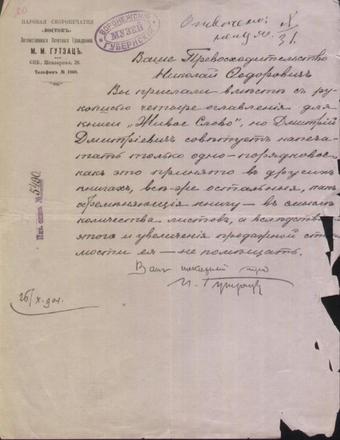 20
ПАРОВАЯ СКОРОПЕЧАТНЯ
„ВОСТОКЪ“
Потомственнаго Почетнаго Гражданина
М. М. ГУТЗАЦЪ.
СПБ.
Телефонъ №
ВОРОНЕЖСКІЙ
МУЗЕЙ
ГУБЕРНСКІЙ
Отвѣчено
31
Ваше Превосходительство
Николай Ѳедоровичъ
Вы прислали вмѣстѣ съ ру-
кописью четыре оглавленія для
книги „Живое Слово“, но Дмитрій
Дмитріевичъ совѣтуетъ напеча-
тать только одно - порядковое,
какъ это принято въ другихъ
книгахъ, всѣ-же остальныя, какъ
обременяющія книгу - въ смыслѣ
количества листовъ, а вслѣдствіе
этого и увеличенія продажной сто-
мости ея - не помѣщать.
Вашъ
26/X